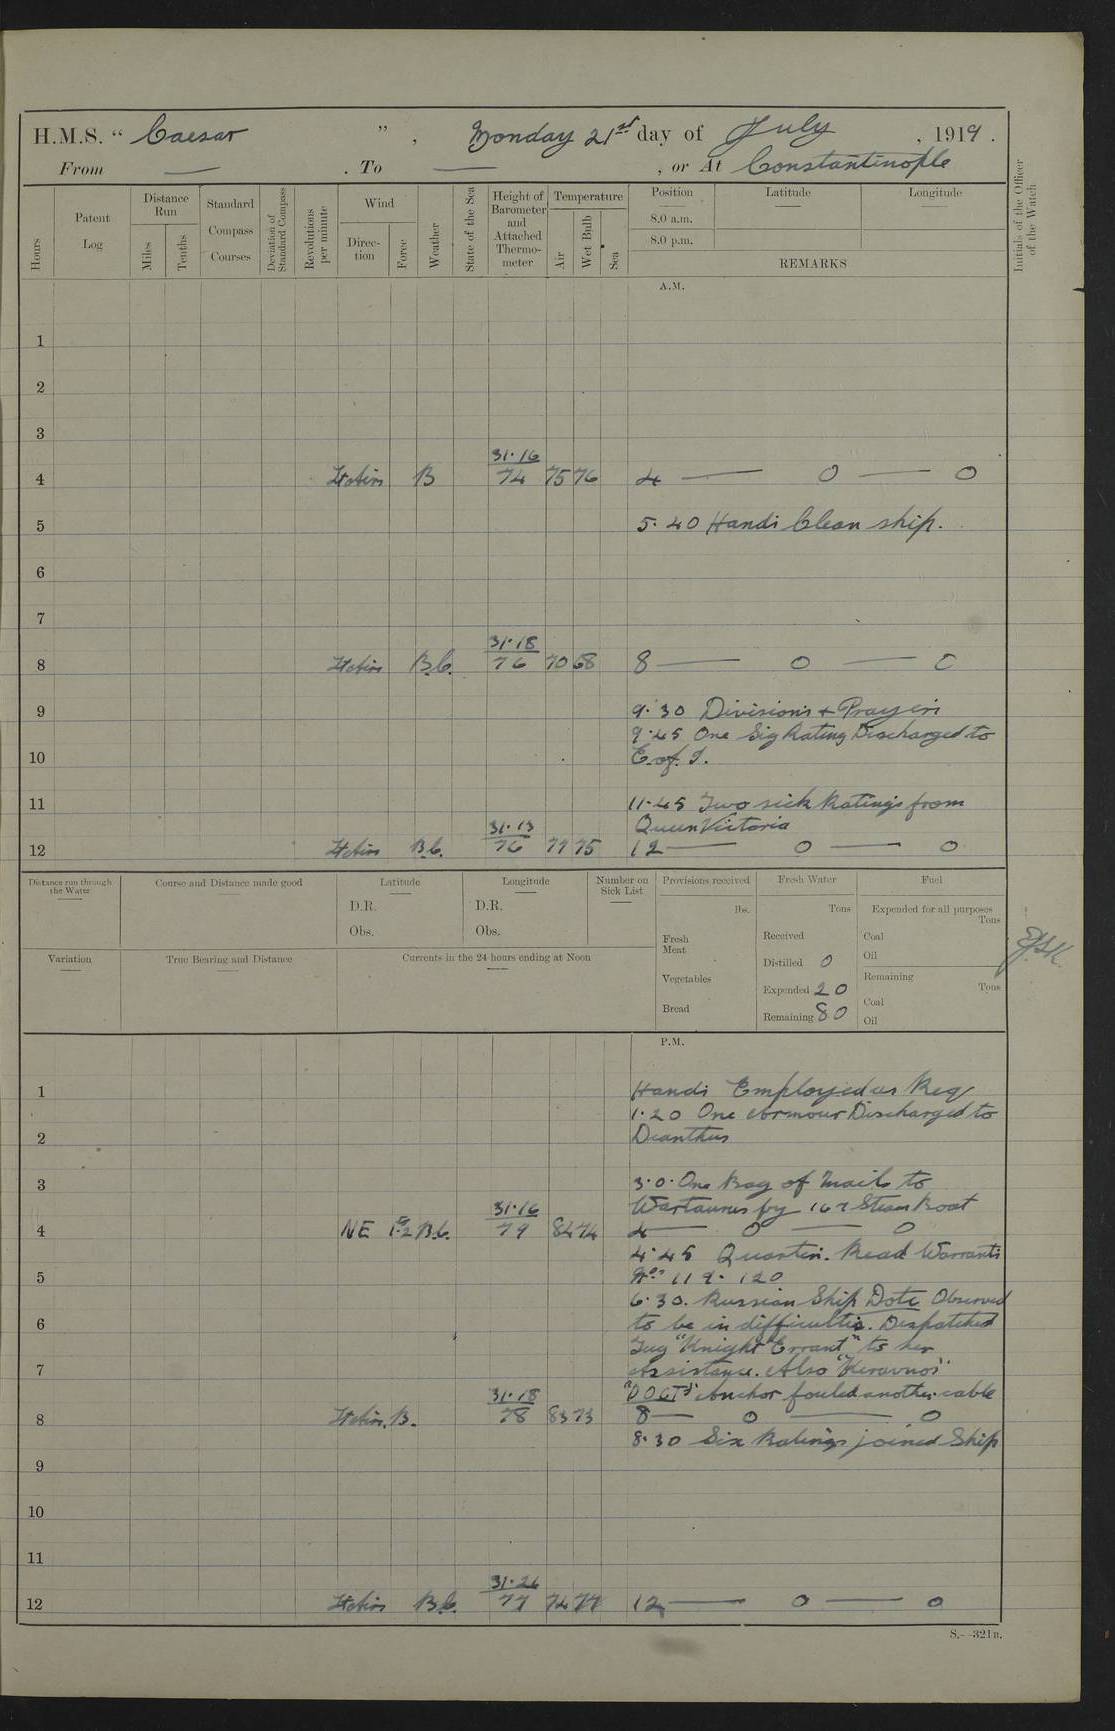 H.M.S. “ Caesar ” , Monday 21st day of July , 1919 .
From — . To — , or At Constantinople
Hours
Patent Log
Distance Run
Miles
Tenths
Standard Compass Courses
Deviation of Standard Compass
Revolutions per minute
Wind
Direc- tion
Force
Weather
State of the Sea
Height of Barometer and Attached Thermo- meter
Temperature
Air
Wet Bulb
Sea
Position
8.0 a.m.
8.0 p.m.
Latitude
Longitude
REMARKS
Initials of the Officer of the Watch
A.M.
1
2
3
31·16
4 Lt Airs B 74 75 76 4 — 0 — 0
5 5·40 Hands Clean ship.
6
7
31·18
8 Lt Airs B.C. 76 70 68 8 — 0 — 0
9 9·30 Divisions + Prayers
9·45 One Sig Rating Discharged to
10 E. of I.
11 11·45 Two sick Ratings from
31·13 Queen Victoria
12 Lt Airs B.C. 76 77 75 12 — 0 — 0
Distance run through the Water
Course and Distance made good
Latitude
D.R.
Obs.
Longitude
D.R.
Obs.
Number on Sick List
Provisions received
lbs.
Fresh Meat
Vegetables
Bread
Fresh Water
Tons
Received
Distilled 0
Expended 20
Remaining 80
Fuel
Expended for all purposes
Tons
Coal
Oil
Remaining
Tons
Coal
Oil
Variation
True Bearing and Distance
Currents in the 24 hours ending at Noon
P.M.
1 Hands Employed as Req
1·20 One Armour Discharged to
2 Dianthus
3 3·0· One Bag of Mails to
31·16 by Steam Boat
4 NE 1-2 B.C. 79 84 74 4 — 0 — 0
4·45 Quarters. Read Warrants
5 Nos 119· 120
6·30. Russian Ship Observed
6 to be in difficulties. Despatched
Tug "Knight Errant" to her
7 Assistance. Also
31·18 Anchor fouled another cable
8 Lt Airs. B. 78 83 73 8 — 0 — 0
8·30 Six Ratings joined Ship
9
10
11
31·26
12 Lt Airs B.C. 77 74 77 12 — 0 — 0
S.—321B.